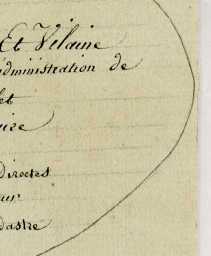 Et Vilaine
dministration de
et
ire
Directes
ur
dastre